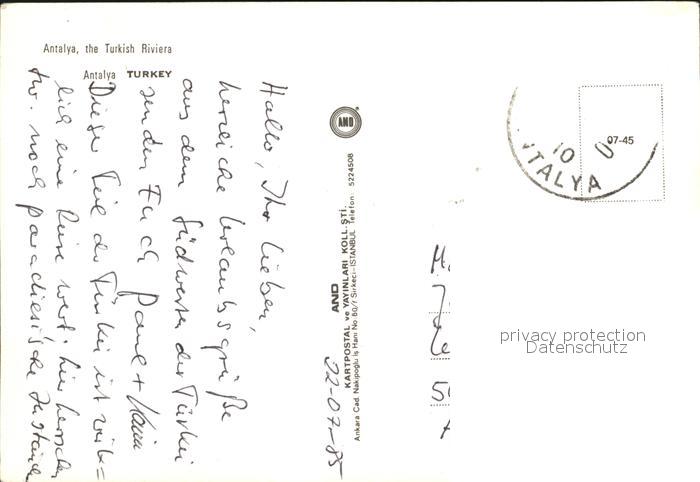 Antalya, the Turkish Riviera
Antalya TURKEY
Hallo, Ihr Lieben,
herzliche Urlaubsgrüße
aus dem Südwesten der Türkei
senden Euch Paul +
Dieser Teil der Türkei ist wirk=
lich eine Reise wert: hier herrschen
noch paradiesische Zustände
22-07-85
AND
AND
KARTPOSTAL ve YAYINLARI KOLL. ŞTİ.
Ankara Cad. Nakipoğlu İş Hanı No: 60/7 Sirkeci-İSTANBUL Telefon: 5224508
10
TALYA
07-45
privacy protection
Datenschutz